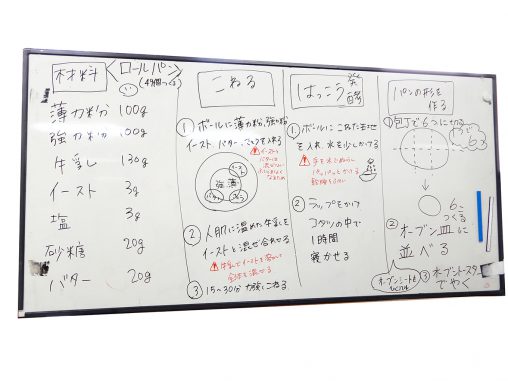 材料
〈ロールパン〉
薄力粉 100g
強力粉 100g
牛乳 130g
イースト 3g
塩 3g
砂糖 20g
バター 20g
こねる
① ボールに薄力粉、強力粉
イースト、バター、を入れる
⚠イーストと
バターは
イースト
強 薄
バター
② 人肌に温めた牛乳を
イーストと混ぜ合わせる
⚠牛乳でイーストを溶かして
全体を混ぜる
③ 15〜30分 力強くこねる
はっこう 発酵
① ボールに こねた生地
を入れ、水を少しかける
⚠手を水でぬらし
パッパッとかける
② ラップをかけて
コタツの中で
1時間
寝かせる
パンの形を
作る
① 包丁で6つに切る
6つ
つくる
② オーブン皿に
並べる
オーブンシートを
③ オーブントースター
でやく